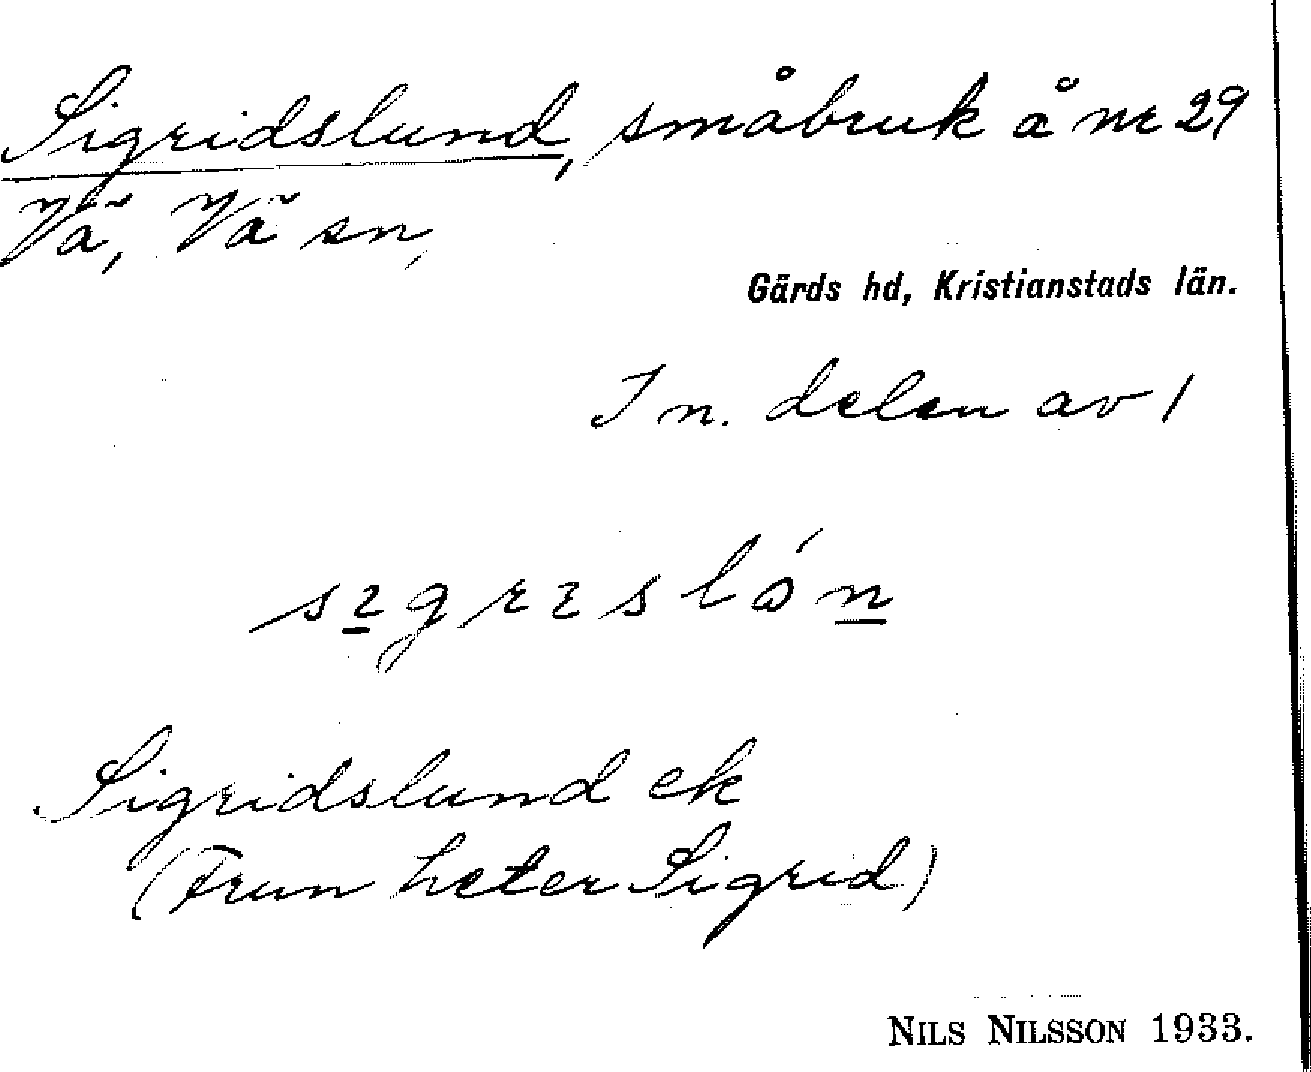 Sigridslund, småbruk å nr 29
Vä, Vä sn,
Gärds hd, Kristianstads län.
I n. delen av 1
sigrislón
Sigridslund ek
(Frun heter Sigrid)
NILS NILSSON 1933.